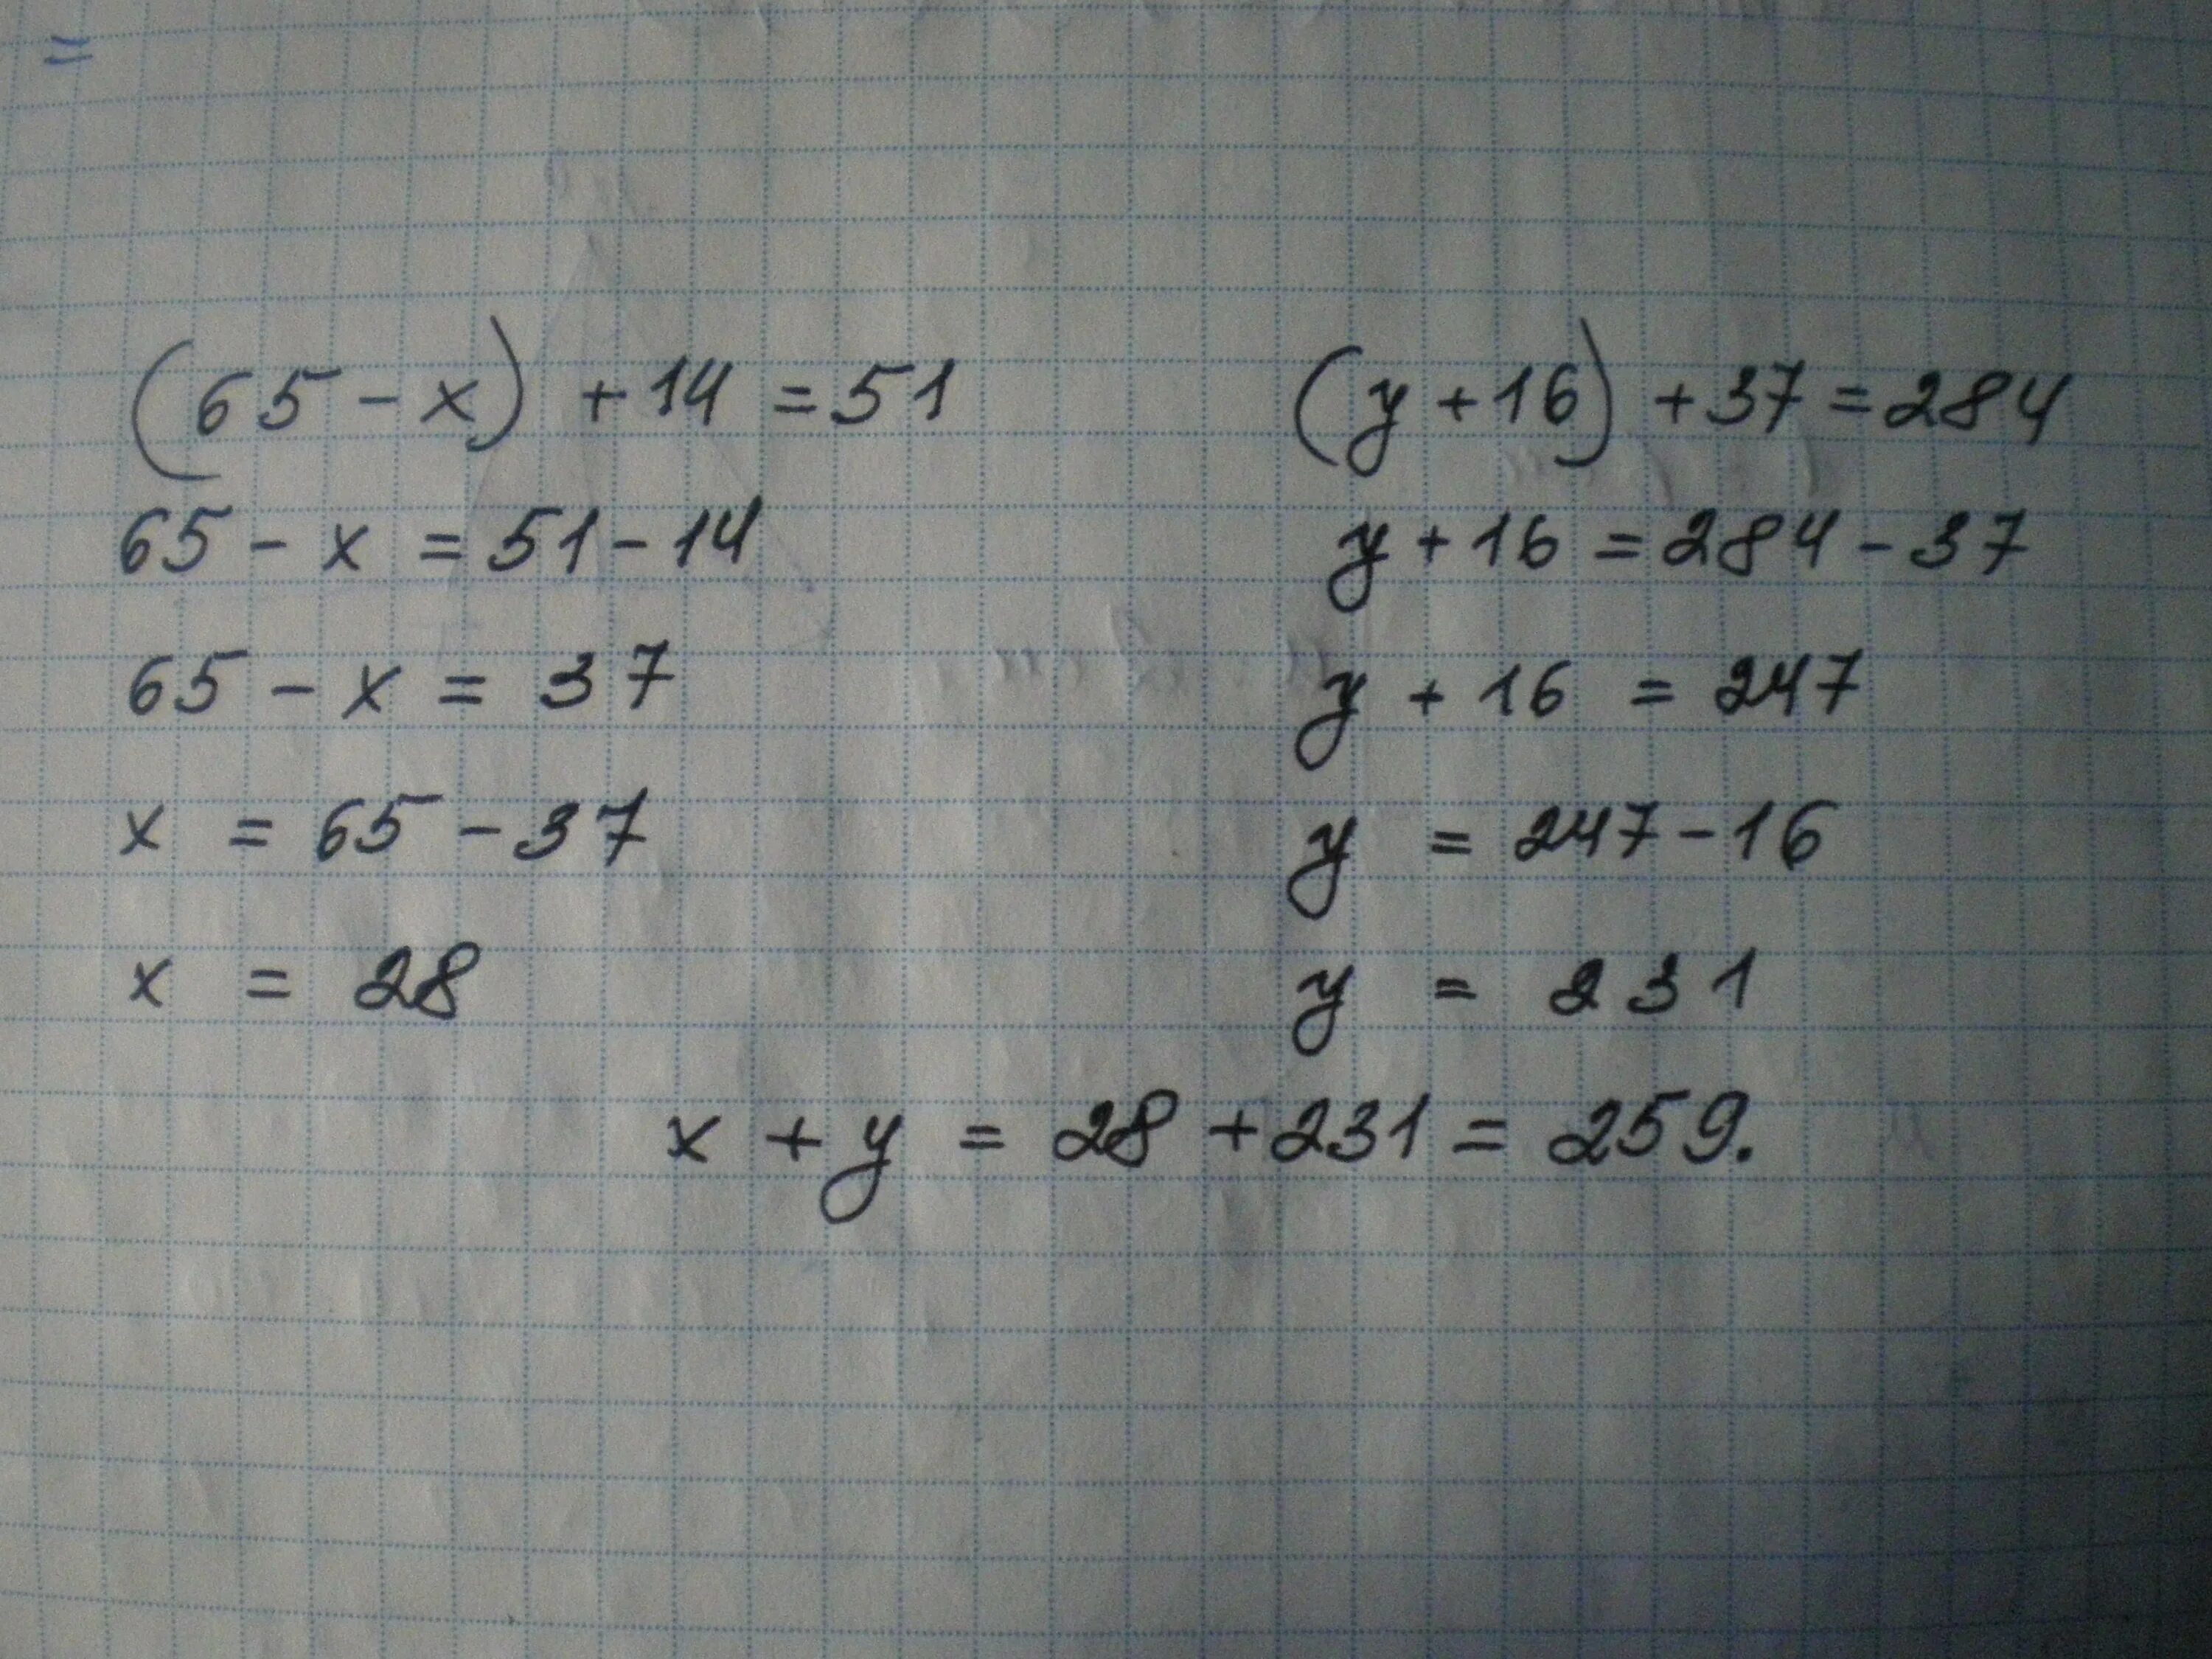 =
(65 - x) + 14 = 51
65 - x = 51 - 14
65 - x = 37
x = 65 - 37
x = 28
(y + 16) + 37 = 284
y + 16 = 284 - 37
y + 16 = 247
y = 247 - 16
y = 231
x + y = 28 + 231 = 259.